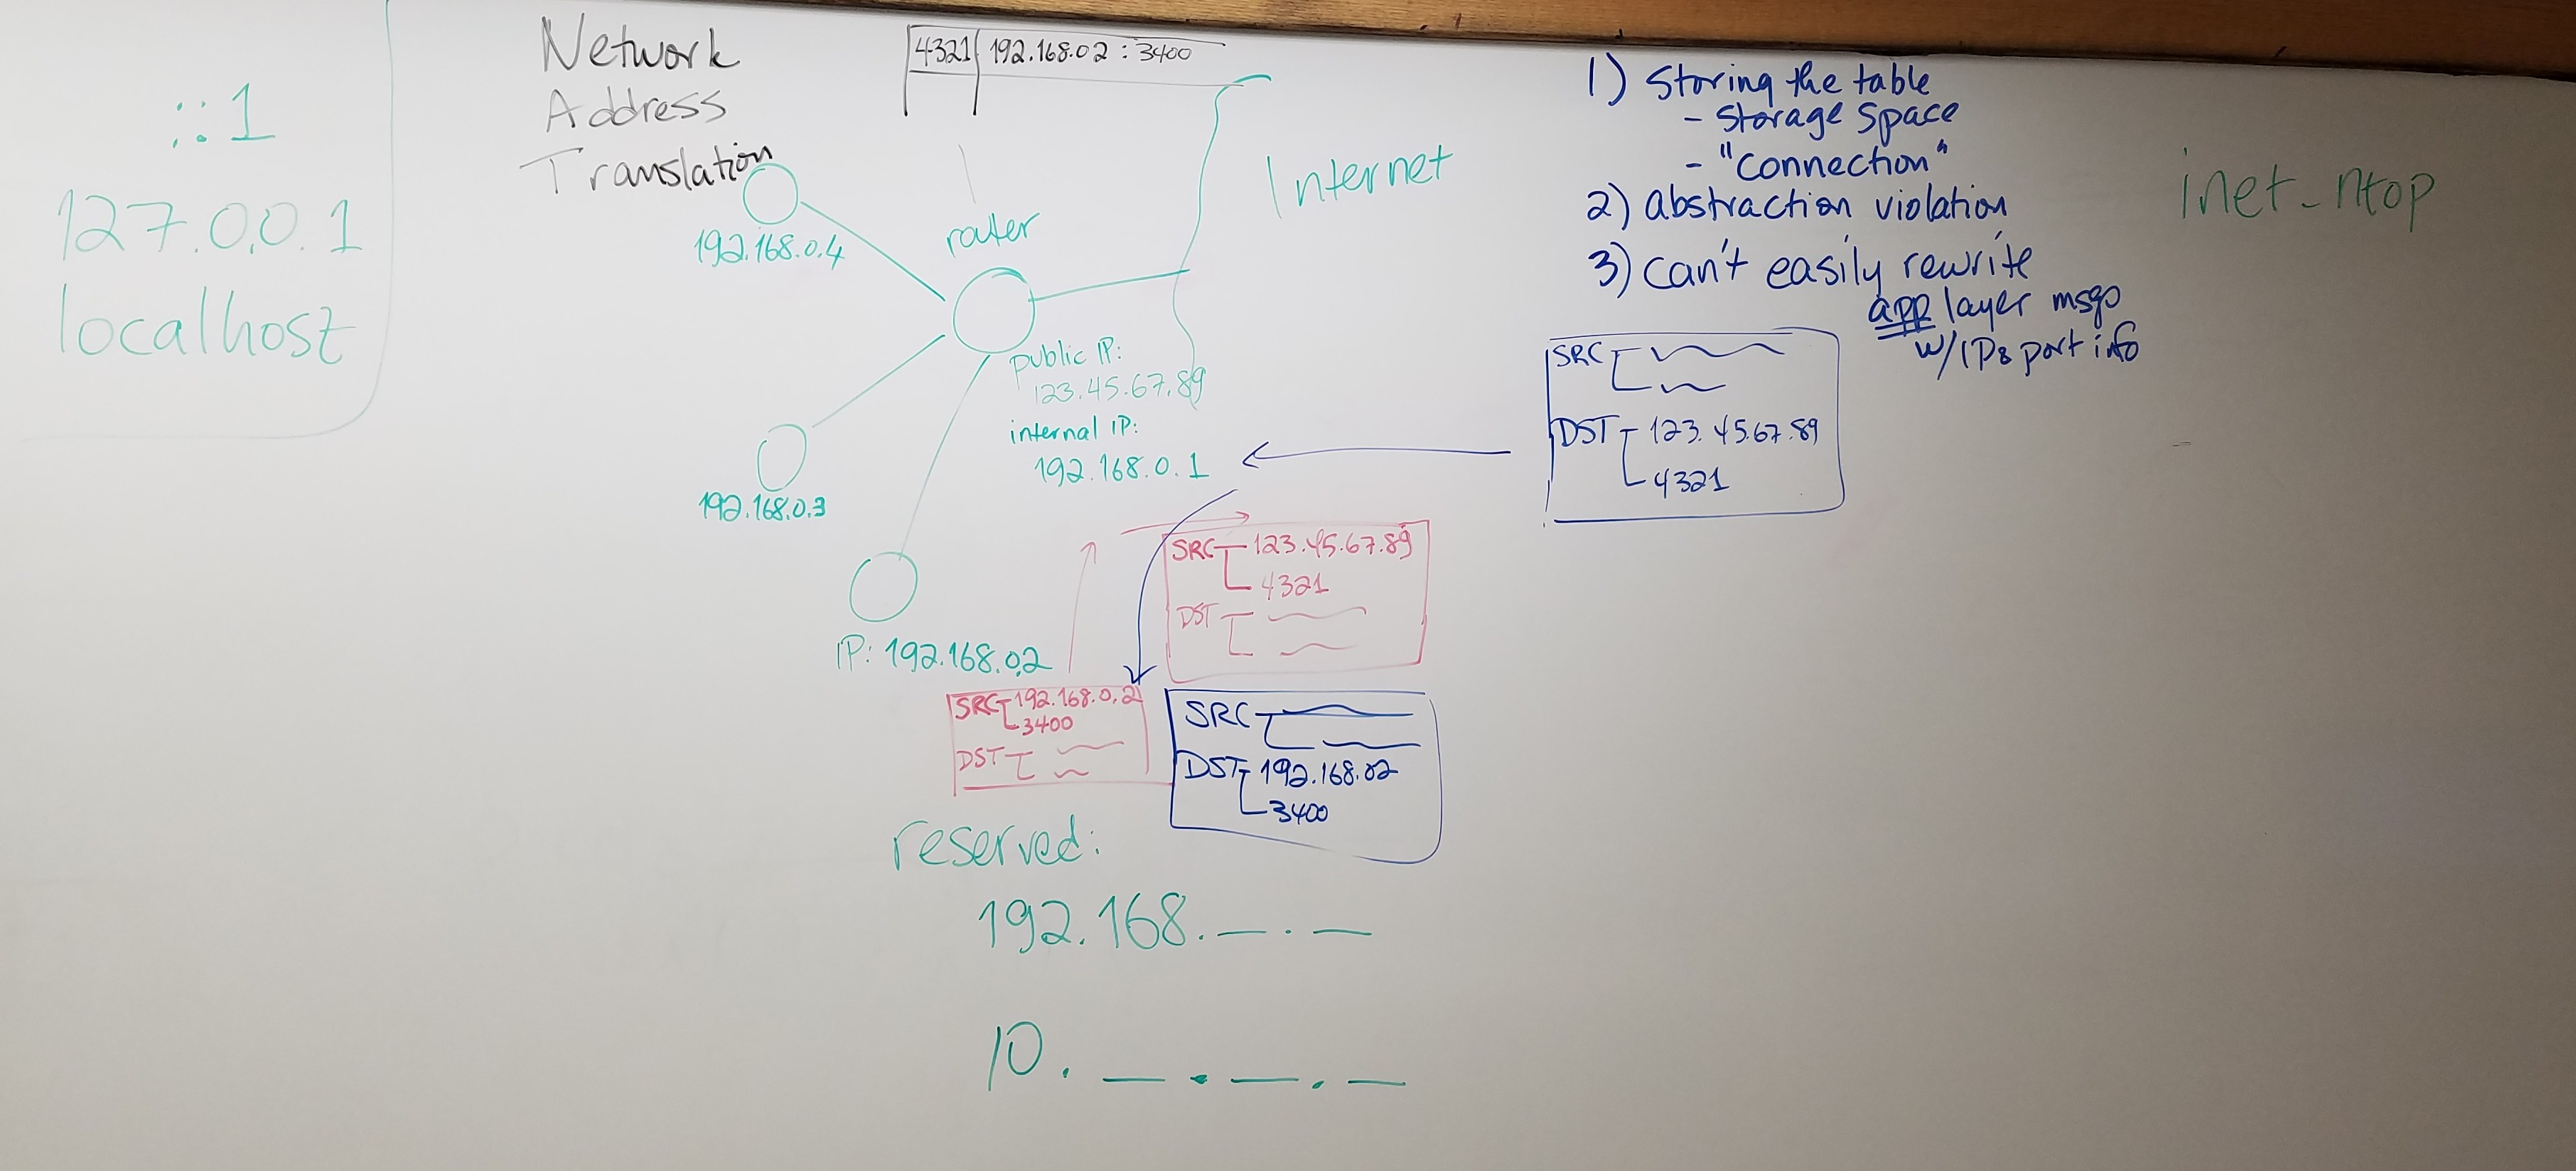 ::1
127.0.0.1
localhost
Network
Address
Translation
4321 192.168.02 : 3400
192.168.0.4
router
Internet
public IP:
123.45.67.89
internal IP:
192.168.0.1
192.168.0.3
IP: 192.168.0.2
SRC 192.168.0.2
3400
DST
SRC 123.45.67.89
4321
DST
SRC
DST 192.168.02
3400
SRC
DST 123.45.67.89
4321
reserved:
192.168._._
10._._._
1) Storing the table
- Storage Space
- "Connection"
2) abstraction violation
3) can't easily rewrite
app layer msgs
w/IP& port info
inet_ntop